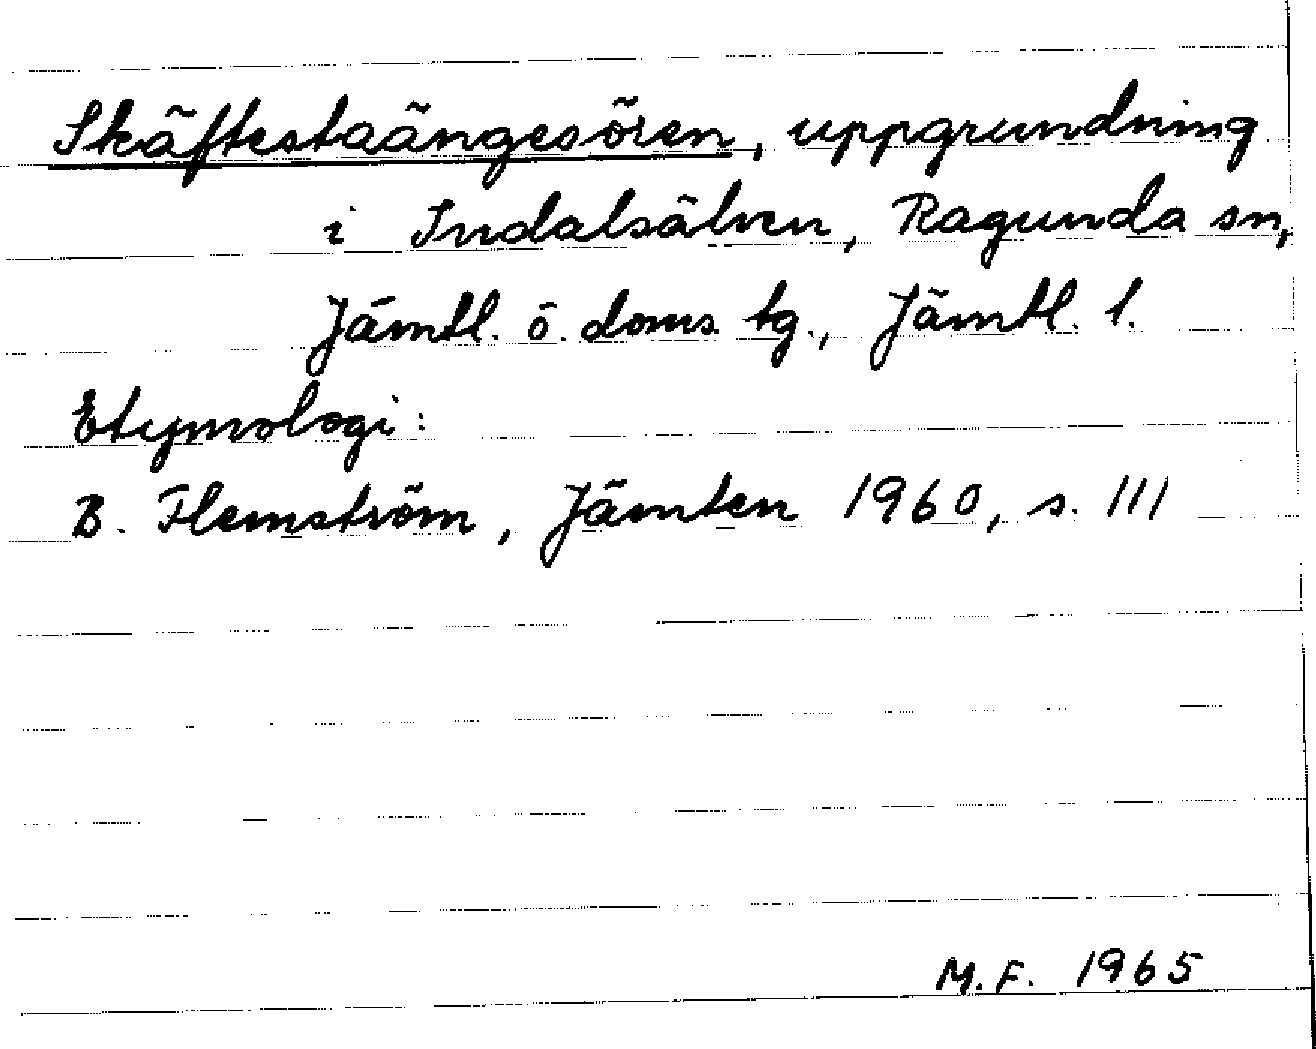 Skäftestaängesören, uppgrundning
i Indalsälven, Ragunda sn,
Jämtl. ö. doms. tg., Jämtl. l.
Etymologi:
B. Flemström, Jämten 1960, s. 111
M.F. 1965